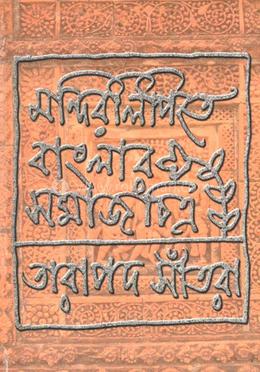 মন্দিরলিপিতে
বাংলার
সমাজচিত্র
তারাপদ সাঁতরা